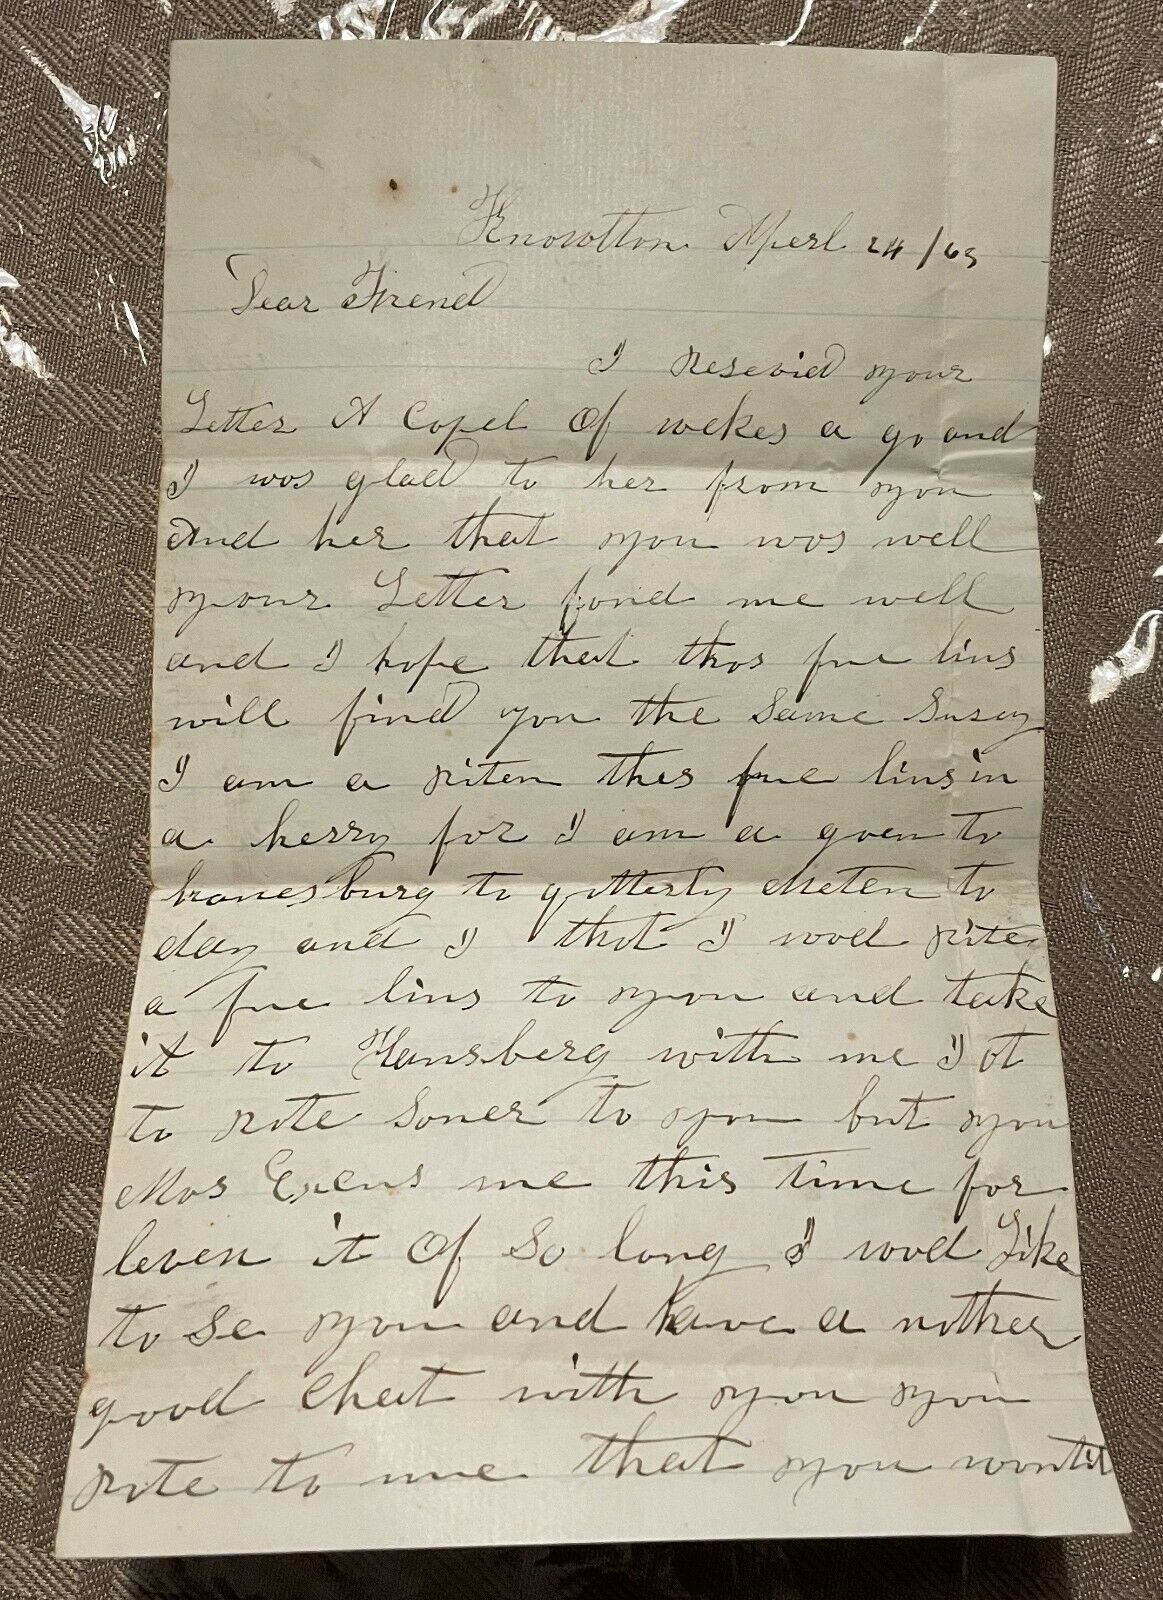 Knowlton Aperl 24/63
Dear Firend
I resevied your
Letter A Copel Of wekes a go and
I was glad to her from you
And her that you was well
your Letter fond me well
and I hope that thos fue lins
will find you the same Susey
I am a riten thes fue lins in
a herry for I am a goen to
hanesburg to qotterly Meten to
day and I thot I wod rite
a fue lins to you and take
it to Hansberg with me I ot
to rite soner to you but you
Mos Exens me this time for
leven it Of So long I wod Like
to se you and have a nother
good Chat with you you
rite to me that you wontid